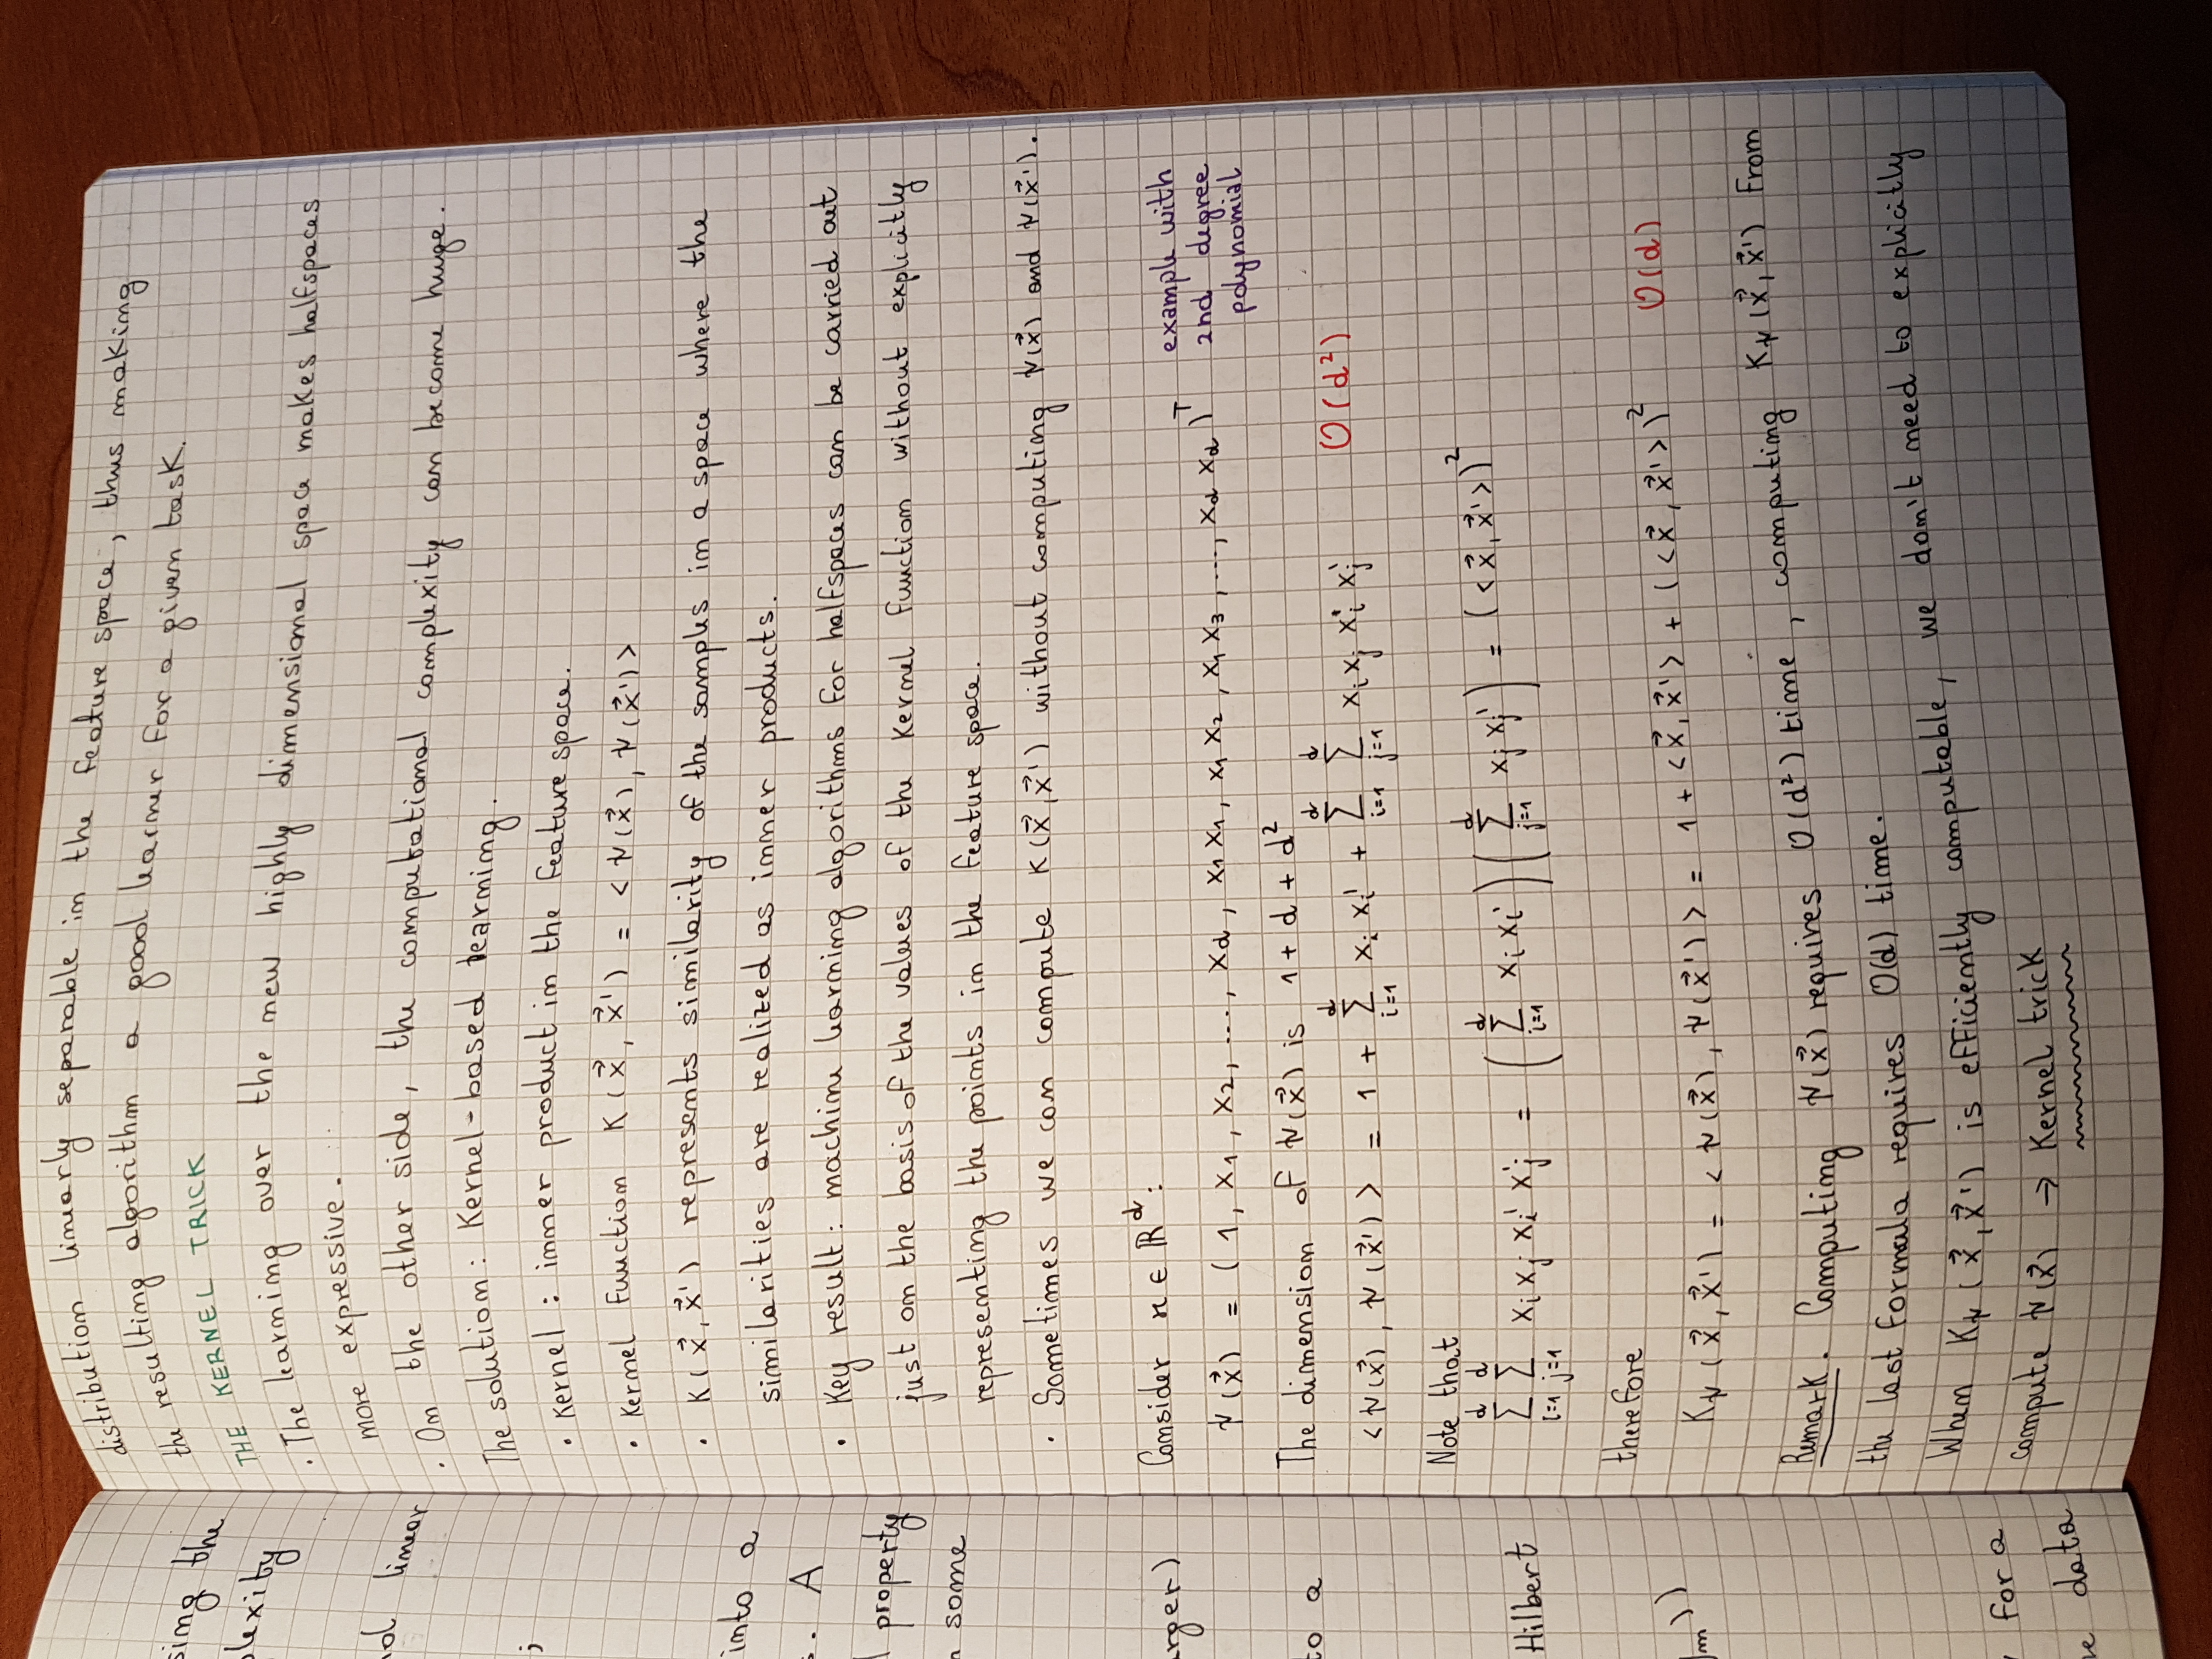 sing the
plexity
nol linear
;
into a
s. A
l property
n some
arger)
to a
Hilbert
m))
for a
e data
distribution linearly separable in the feature space, thus making
the resulting algorithm a good learner for a given task.
THE KERNEL TRICK
· The learning over the new highly dimensional space makes halfspaces
more expressive.
· On the other side, the computational complexity can become huge.
The solution: Kernel-based learning.
• Kernel: inner product in the feature space.
• Kernel function K(x⃗, x⃗') = <ψ(x⃗), ψ(x⃗')>
• K(x⃗, x⃗') represents similarity of the samples in a space where the
similarities are realized as inner products.
• Key result: machine learning algorithms for halfspaces can be carried out
just on the basis of the values of the kernel function without explicitly
representing the points in the feature space.
• Sometimes we can compute K(x⃗, x⃗') without computing ψ(x⃗) and ψ(x⃗').
Consider x ∈ ℝ^d:
ψ(x⃗) = (1, x₁, x₂, ..., x_d, x₁x₁, x₁x₂, x₁x₃, ..., x_d x_d)^T
example with
2nd degree
polynomial
The dimension of ψ(x⃗) is 1 + d + d²
<ψ(x⃗), ψ(x⃗')> = 1 + Σ_{i=1}^{d} x_i x_i' + Σ_{i=1}^{d} Σ_{j=1}^{d} x_i x_j x_i' x_j' O(d²)
Note that
Σ_{i=1}^{d} Σ_{j=1}^{d} x_i x_j x_i' x_j' = (Σ_{i=1}^{d} x_i x_i') (Σ_{j=1}^{d} x_j x_j') = (<x⃗, x⃗'>)²
therefore
K_ψ(x⃗, x⃗') = <ψ(x⃗), ψ(x⃗')> = 1 + <x⃗, x⃗'> + (<x⃗, x⃗'>)² O(d)
Remark. Computing ψ(x⃗) requires O(d²) time, computing K_ψ(x⃗, x⃗') from
the last formula requires O(d) time.
When K_ψ(x⃗, x⃗') is efficiently computable, we don't need to explicitly
compute ψ(x⃗) → Kernel trick